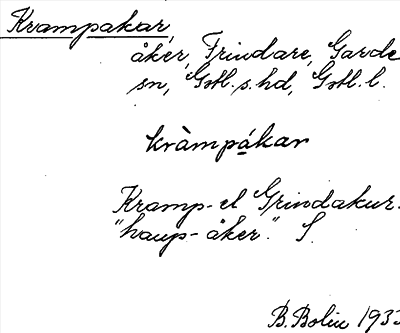 Krampakar,
åker, Frindare, Garde
sn, Gotl. s. hd, Gotl. l.
kràmpákar
Kramp- el Grindakur.
"haup-åker." S.
B. Bolin 1933